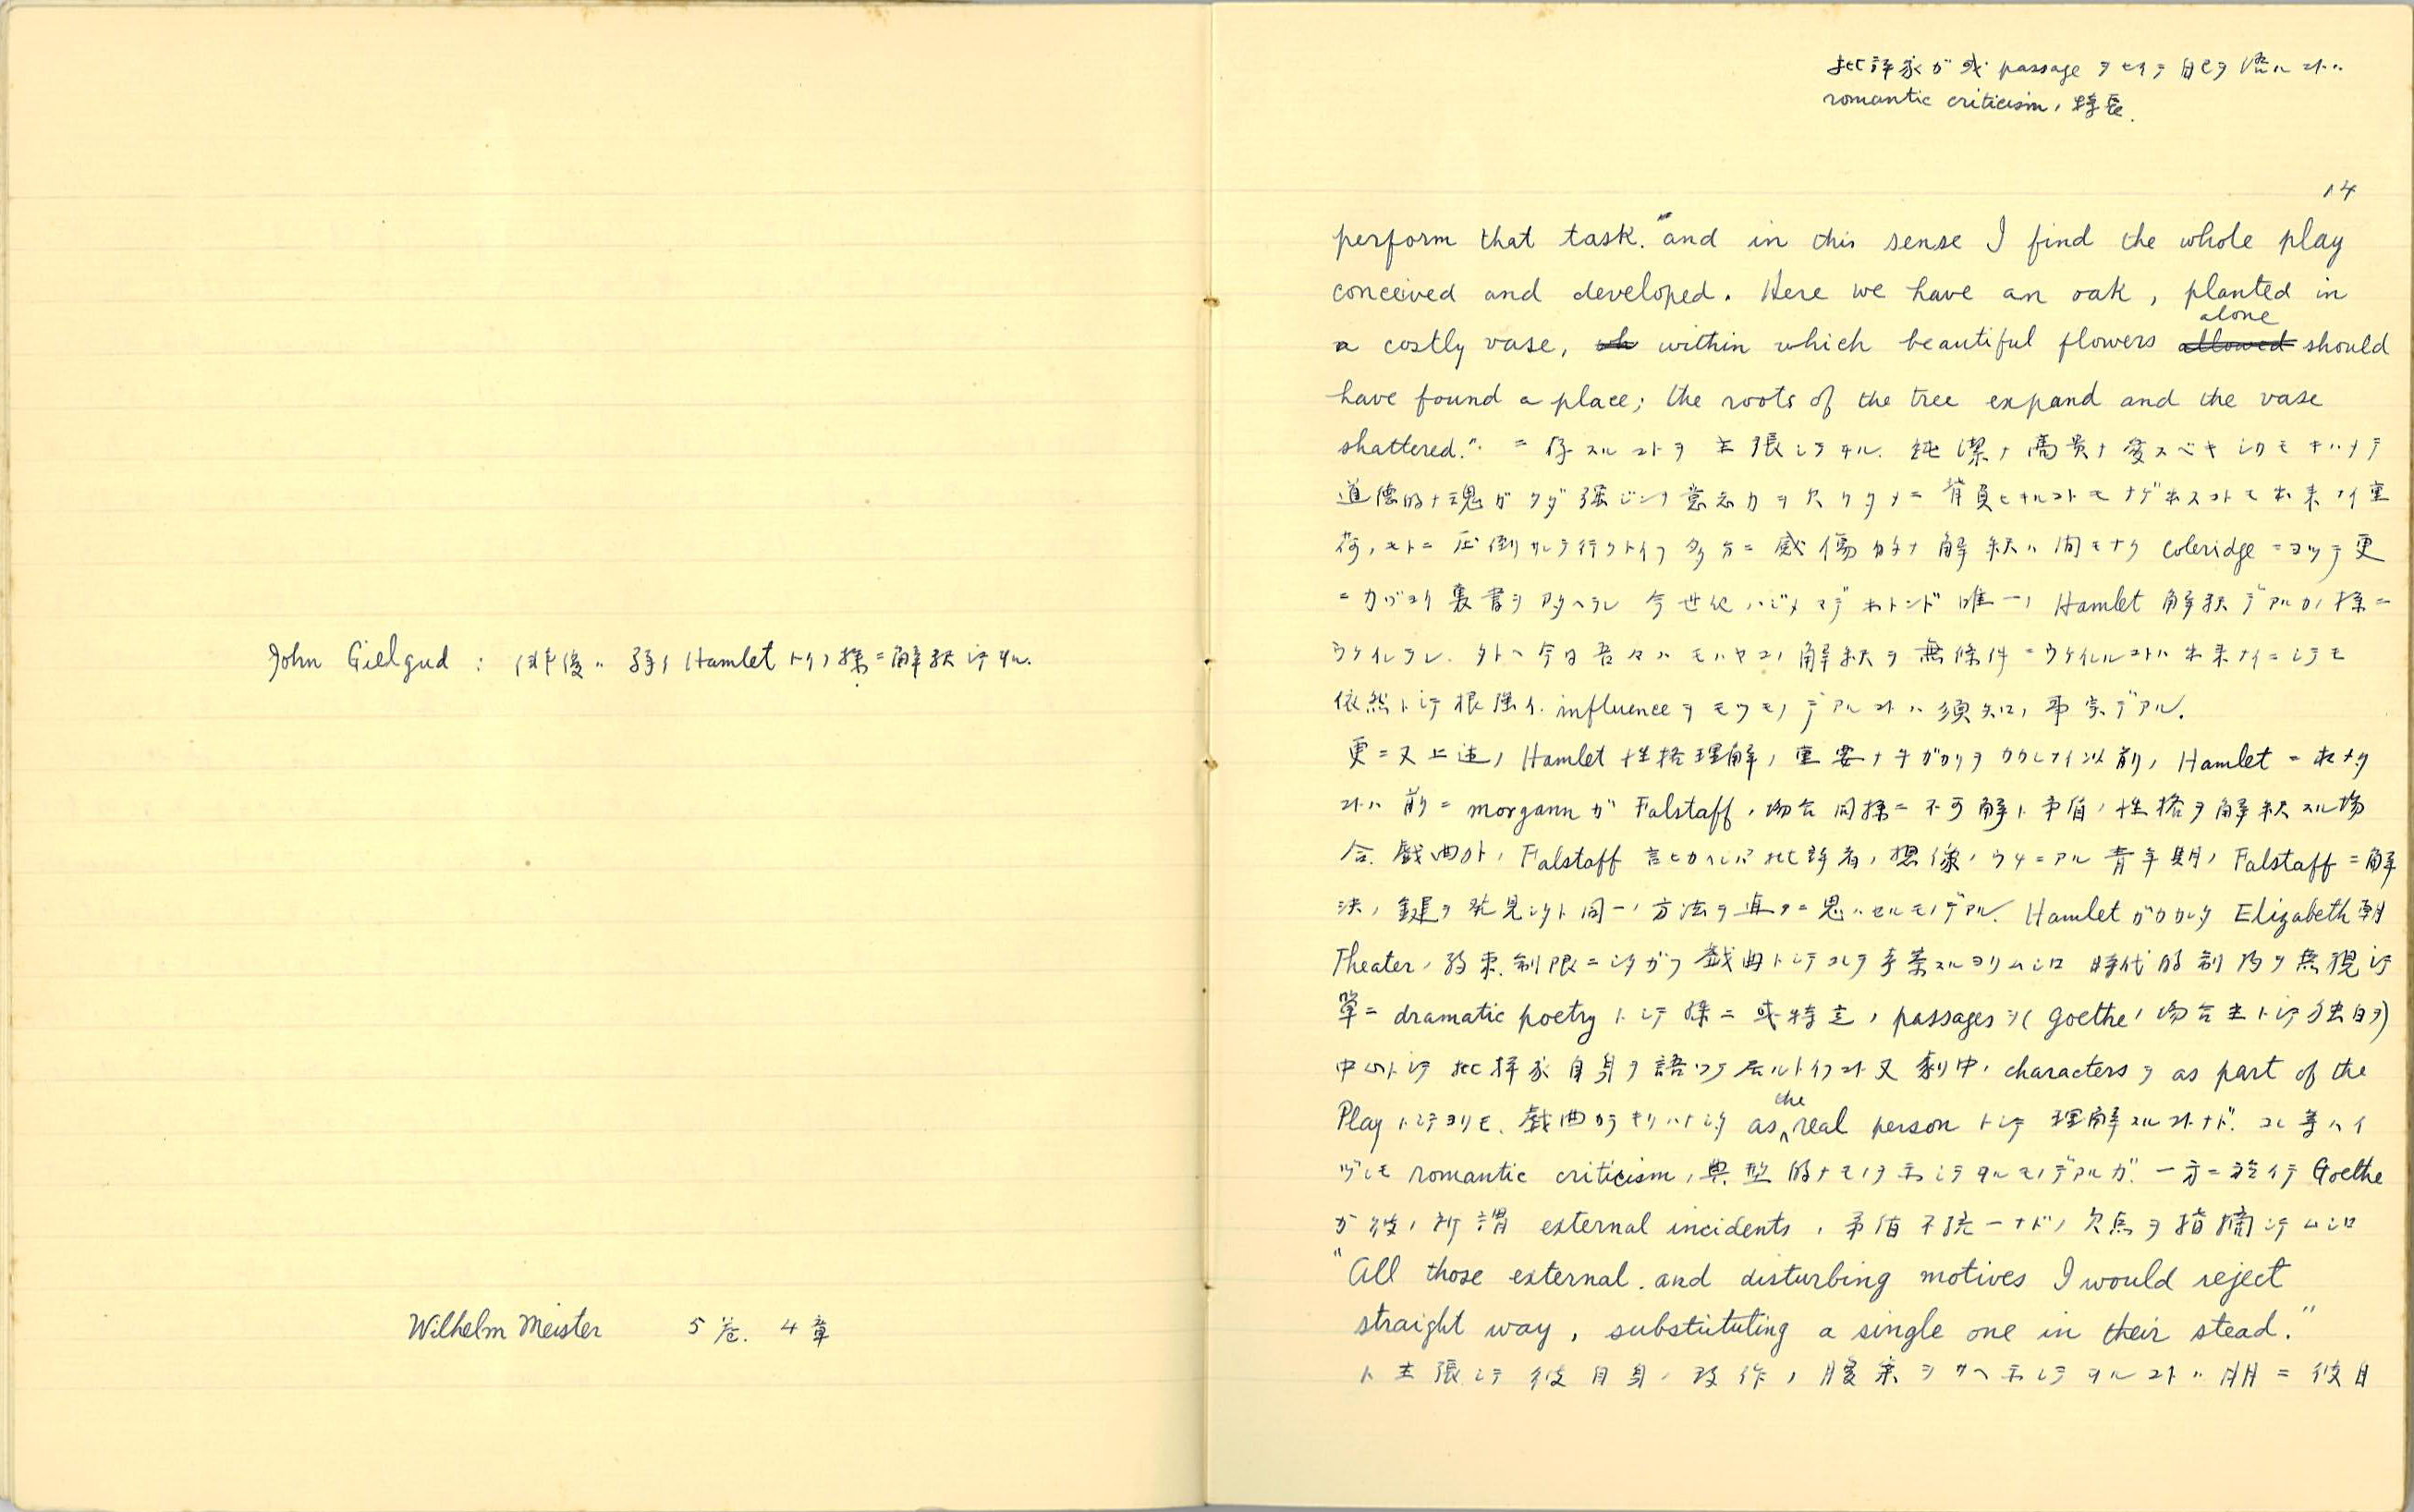 John Gielgud : 伴後ハ 弱イ Hamlet トノ様ニ解釈シテヰル.
Wilhelm Meister 5巻. 4章
批評家ガ或 passage ヲ 自己ヲ コトハ
romantic criticism ノ 特長.
14
perform that task." and in this sense I find the whole play
conceived and developed. Here we have an oak, planted in
alone
a costly vase, wh within which beautiful flowers allowed should
have found a place; the roots of the tree expand and the vase
shattered." ニ存スルコトヲ主張シテヰル. 純潔ナ高貴ナ愛スベキシカモキハメテ
道徳的ナ魂ガタダ強ジンナ意志力ヲ欠クタメニ背負ヒキルコトモナゲ出スコトモ出来ナイ重
荷ノモトニ圧倒サレテ行クトイフ多分ニ感傷的ナ解釈ハ間モナク Coleridge ニヨッテ更
ニ力ヅヨク裏書ヲアタヘラレ 今世紀ハジメマデホトンド唯一ノ Hamlet 解釈デアルカノ様ニ
ウケイレラレ. タトヘ今日吾々ハモハヤコノ解釈ヲ無條件ニウケイレルコトハ出来ナイニシテモ
依然トシテ根強イ influence ヲモツモノデアルコトハ須知ノ事実デアル.
更ニ又上述ノ Hamlet 性格理解ノ重要ナ手ガカリヲ カカレナイ以前ノ Hamlet ニ求メタ
コトハ前ニ Morgann ガ Falstaff ノ場合同様ニ不可解ト矛盾ノ性格ヲ解釈スル場
合. 戯曲外ノ Falstaff 言ヒカヘレバ批評者ノ想像ノウチニアル青年期ノ Falstaff ニ解
決ノ鍵ヲ発見シタト同一ノ方法ヲ直チニ思ハセルモノデアル. Hamlet ガカカレタ Elizabeth 朝
Theater ノ約束. 制限ニシタガフ戯曲トシテコレヲ考案スルヨリムシロ 時代的制約ヲ無視シテ
単ニ dramatic poetry トシテ殊ニ或特定ノ passages ヲ(Goethe ノ場合主トシテ独白ヲ)
中心トシテ批評家自身ヲ語ッテ居ルトイフコト又劇中ノ characters ヲ as part of the
the
Play トシテヨリモ. 戯曲カラキリハナシタ as real person トシテ理解スルコトナド. コレ等ハイ
ヅレモ romantic criticism ノ典型的ナモノヲ示シテヰルモノデアルガ. 一方ニ於イテ Goethe
ガ彼ノ所謂 external incidents ノ矛盾不統一ナドノ欠点ヲ指摘シテムシロ
"All those external and disturbing motives I would reject
straight way, substituting a single one in their stead."
ト主張シテ彼自身ノ改作ノ腹案ヲサヘ示シテヰルコトハ明ニ彼自